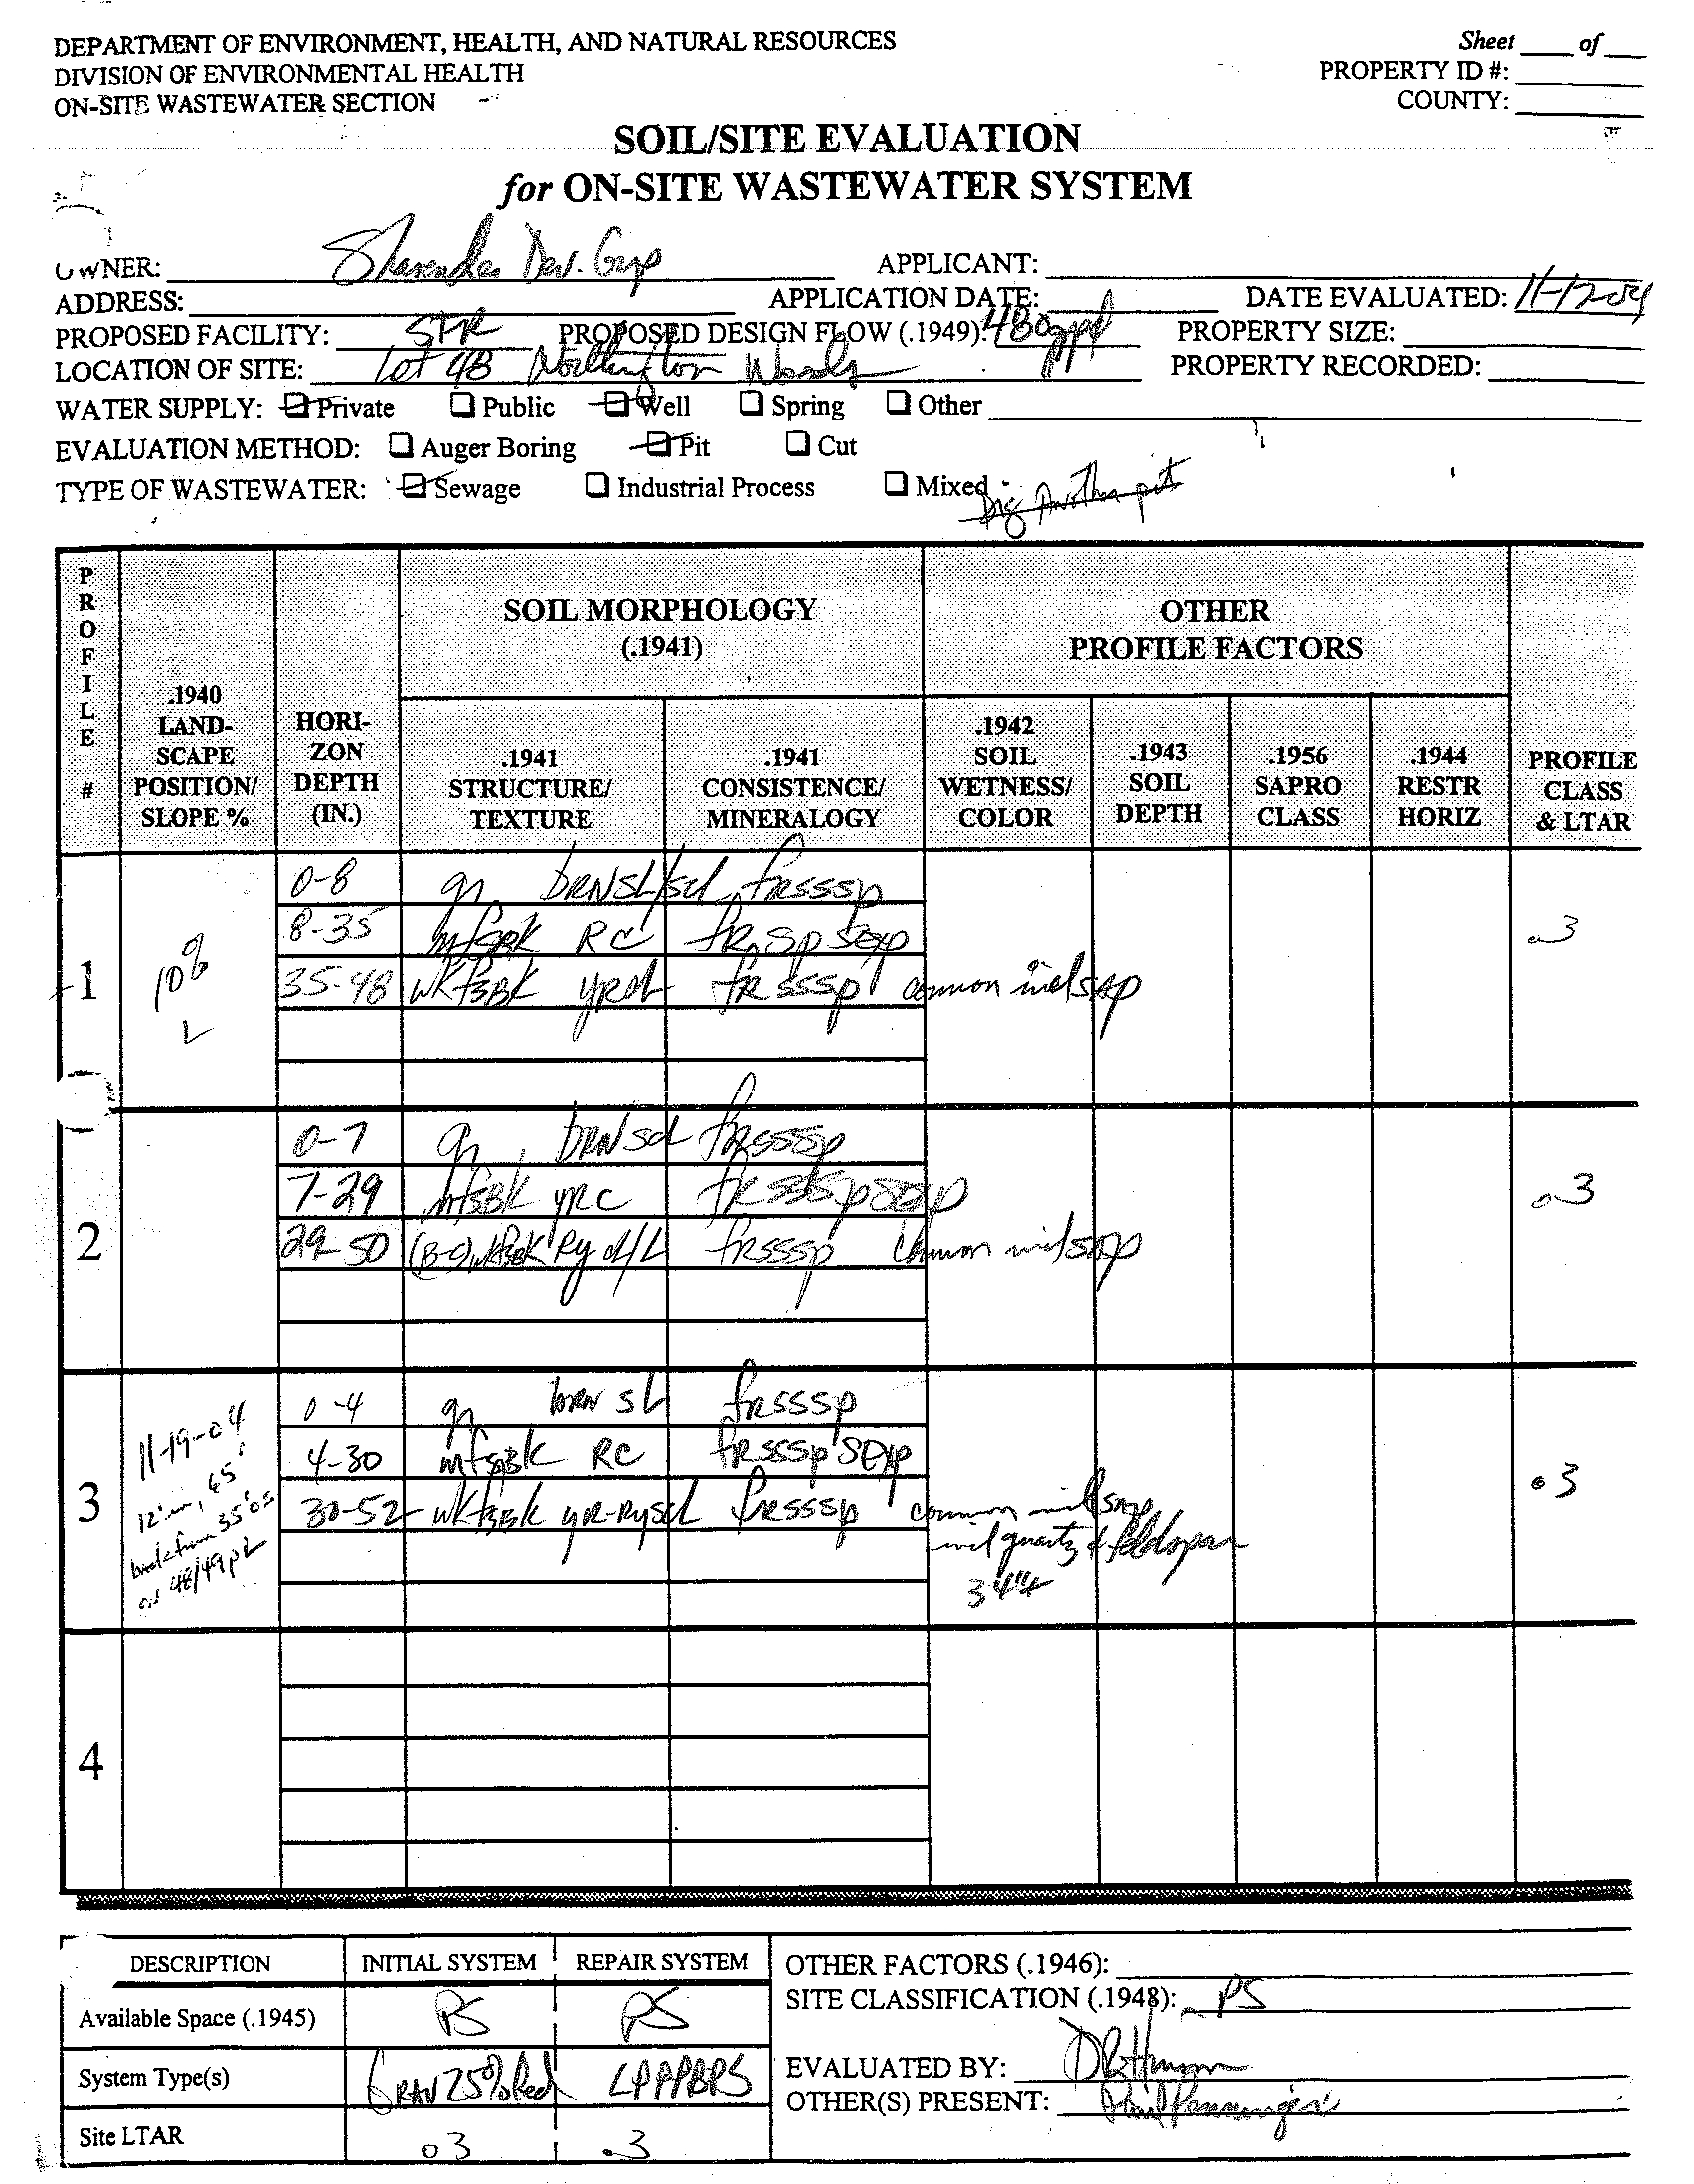 DEPARTMENT OF ENVIRONMENT, HEALTH, AND NATURAL RESOURCES
DIVISION OF ENVIRONMENTAL HEALTH
ON-SITE WASTEWATER SECTION
Sheet ____ of ____
PROPERTY ID #:
COUNTY:
SOIL/SITE EVALUATION
for ON-SITE WASTEWATER SYSTEM
OWNER: Dev. Grp APPLICANT:
ADDRESS: APPLICATION DATE: DATE EVALUATED: 11-12-04
PROPOSED FACILITY: SFR PROPOSED DESIGN FLOW (.1949): 480gpd PROPERTY SIZE:
LOCATION OF SITE: Lot 48 Worthington Woods PROPERTY RECORDED:
WATER SUPPLY: Private Public Well Spring Other
EVALUATION METHOD: Auger Boring Pit Cut
TYPE OF WASTEWATER: Sewage Industrial Process Mixed
Dig Another pit
PROFILE #
.1940 LAND-SCAPE POSITION/ SLOPE %
HORI-ZON DEPTH (IN.)
SOIL MORPHOLOGY (.1941)
.1941 STRUCTURE/ TEXTURE
.1941 CONSISTENCE/ MINERALOGY
OTHER PROFILE FACTORS
.1942 SOIL WETNESS/ COLOR
.1943 SOIL DEPTH
.1956 SAPRO CLASS
.1944 RESTR HORIZ
PROFILE CLASS & LTAR
1 10% L
0-8 gr brnSL/scl frsssp
8-35 mfsbk RC fR,sp sexp .3
35-48 wkfsbk frsssp common mixl sap
2
0-7 gr brnscl frsssp
7-29 mfsBk yRC .3
29-50 (B-C)wkfsbk frsssp common mixl sap
3 11-19-04
0-4 gr brn SL frsssp
4-30 mfsbk RC frsssp sexp .3
30-52 wkfsbk yR-Ryscl frsssp common
quartz & feldspar
12' in, 65' back from 35'
on 48/49 pL
34"
4
DESCRIPTION INITIAL SYSTEM REPAIR SYSTEM
Available Space (.1945) PS PS
System Type(s) GRAV 25% Red LPPPBPS
Site LTAR .03 .3
OTHER FACTORS (.1946):
SITE CLASSIFICATION (.1948): PS
EVALUATED BY:
OTHER(S) PRESENT: